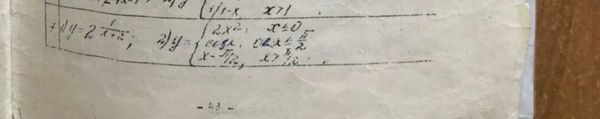 { 1/1-x   x>1
1) y=2^{1/(x+2)};   2) y={ 2x², x≤0
cosx, 0<x≤π/2
x-π/2, x>π/2.
- 43 -